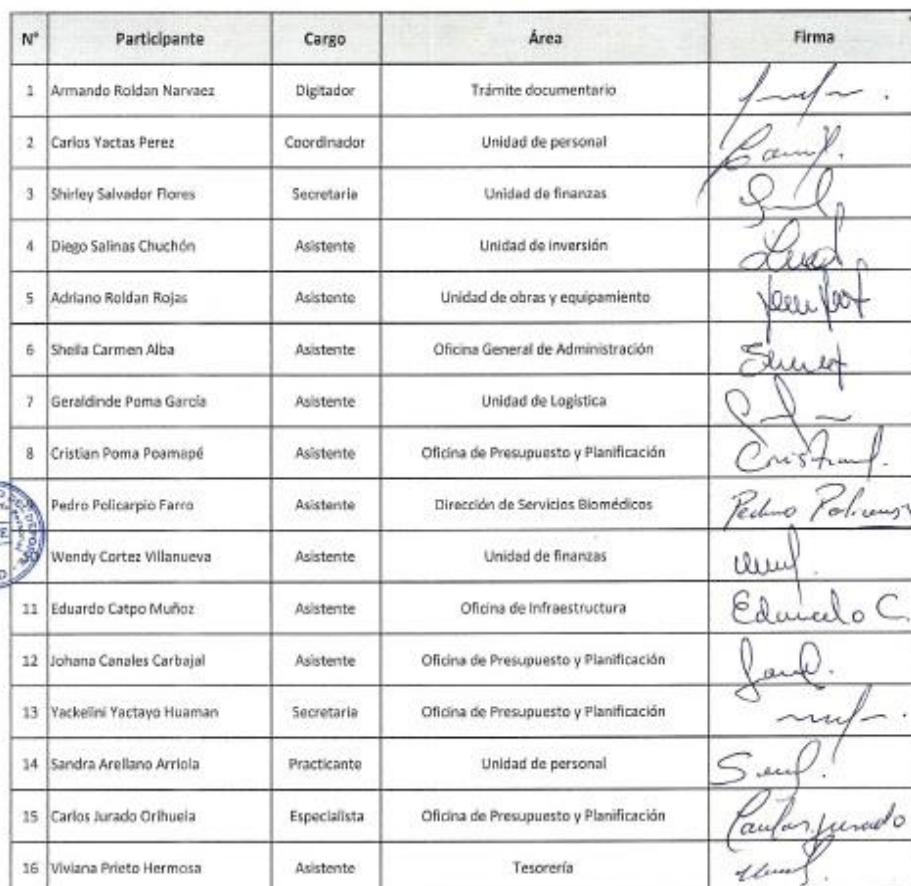 N° Participante Cargo Área Firma
1 Armando Roldan Narvaez Digitador Trámite documentario
2 Carlos Yactas Perez Coordinador Unidad de personal
3 Shirley Salvador Flores Secretaria Unidad de finanzas
4 Diego Salinas Chuchón Asistente Unidad de inversión
5 Adriano Roldan Rojas Asistente Unidad de obras y equipamiento
6 Sheila Carmen Alba Asistente Oficina General de Administración
7 Geraldinde Poma García Asistente Unidad de Logística
8 Cristian Poma Poamapé Asistente Oficina de Presupuesto y Planificación
Pedro Policarpio Farro Asistente Dirección de Servicios Biomédicos Pedro
Wendy Cortez Villanueva Asistente Unidad de finanzas
11 Eduardo Catpo Muñoz Asistente Oficina de Infraestructura C.
12 Johana Canales Carbajal Asistente Oficina de Presupuesto y Planificación
13 Yackelini Yactayo Huaman Secretaria Oficina de Presupuesto y Planificación
14 Sandra Arellano Arriola Practicante Unidad de personal
15 Carlos Jurado Orihuela Especialista Oficina de Presupuesto y Planificación jurado
16 Viviana Prieto Hermosa Asistente Tesorería